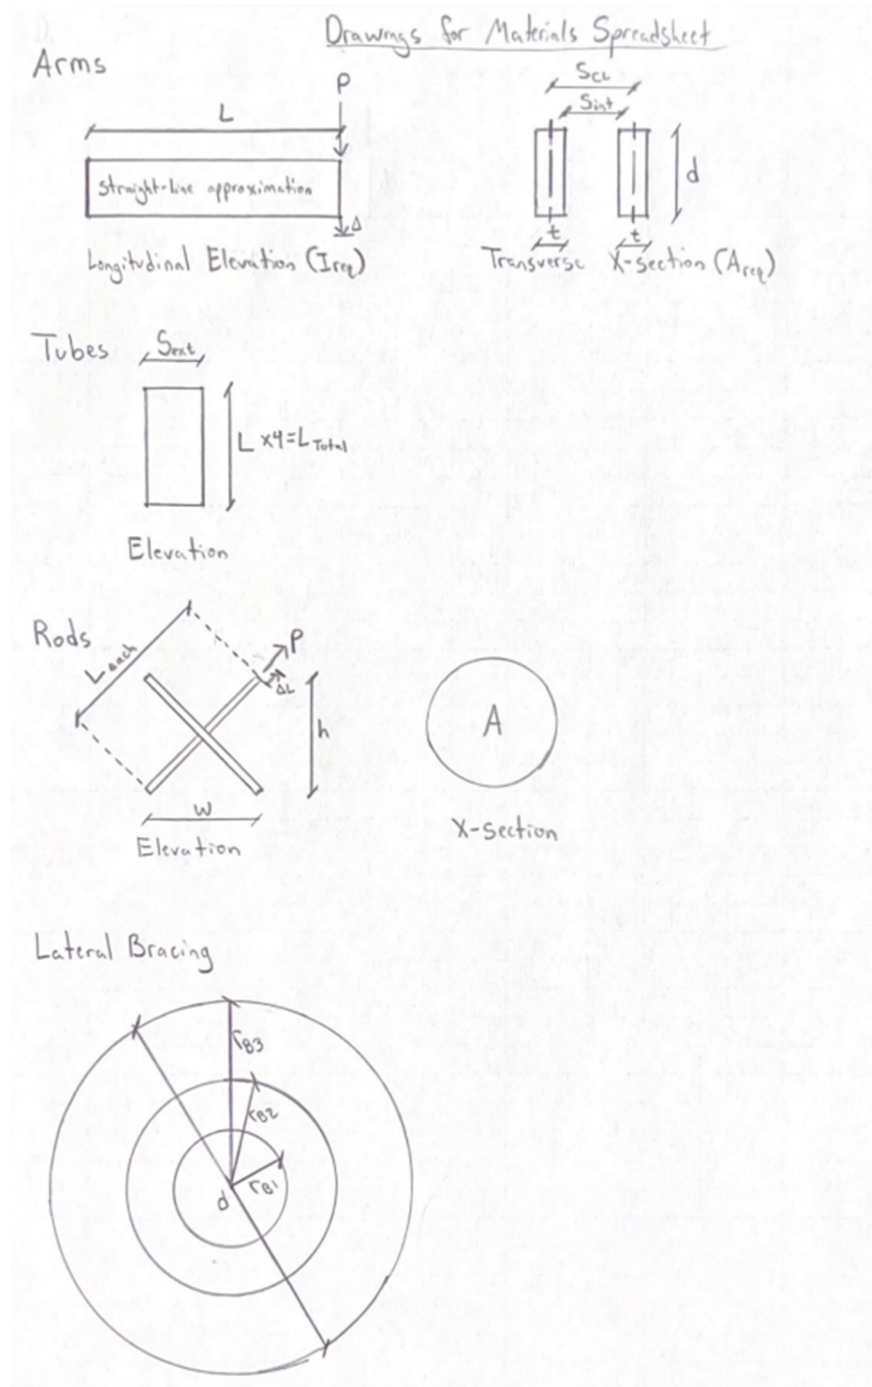 Drawings for Materials Spreadsheet
Arms
L
P
straight-line approximation
Δ
Longitudinal Elevation (Ireq)
SCL
Sint
d
t
t
Transverse X-section (Areq)
Tubes
Sext
L x4=LTotal
Elevation
Rods
Leach
P
ΔL
h
w
Elevation
A
X-section
Lateral Bracing
rB3
rB2
rB1
d